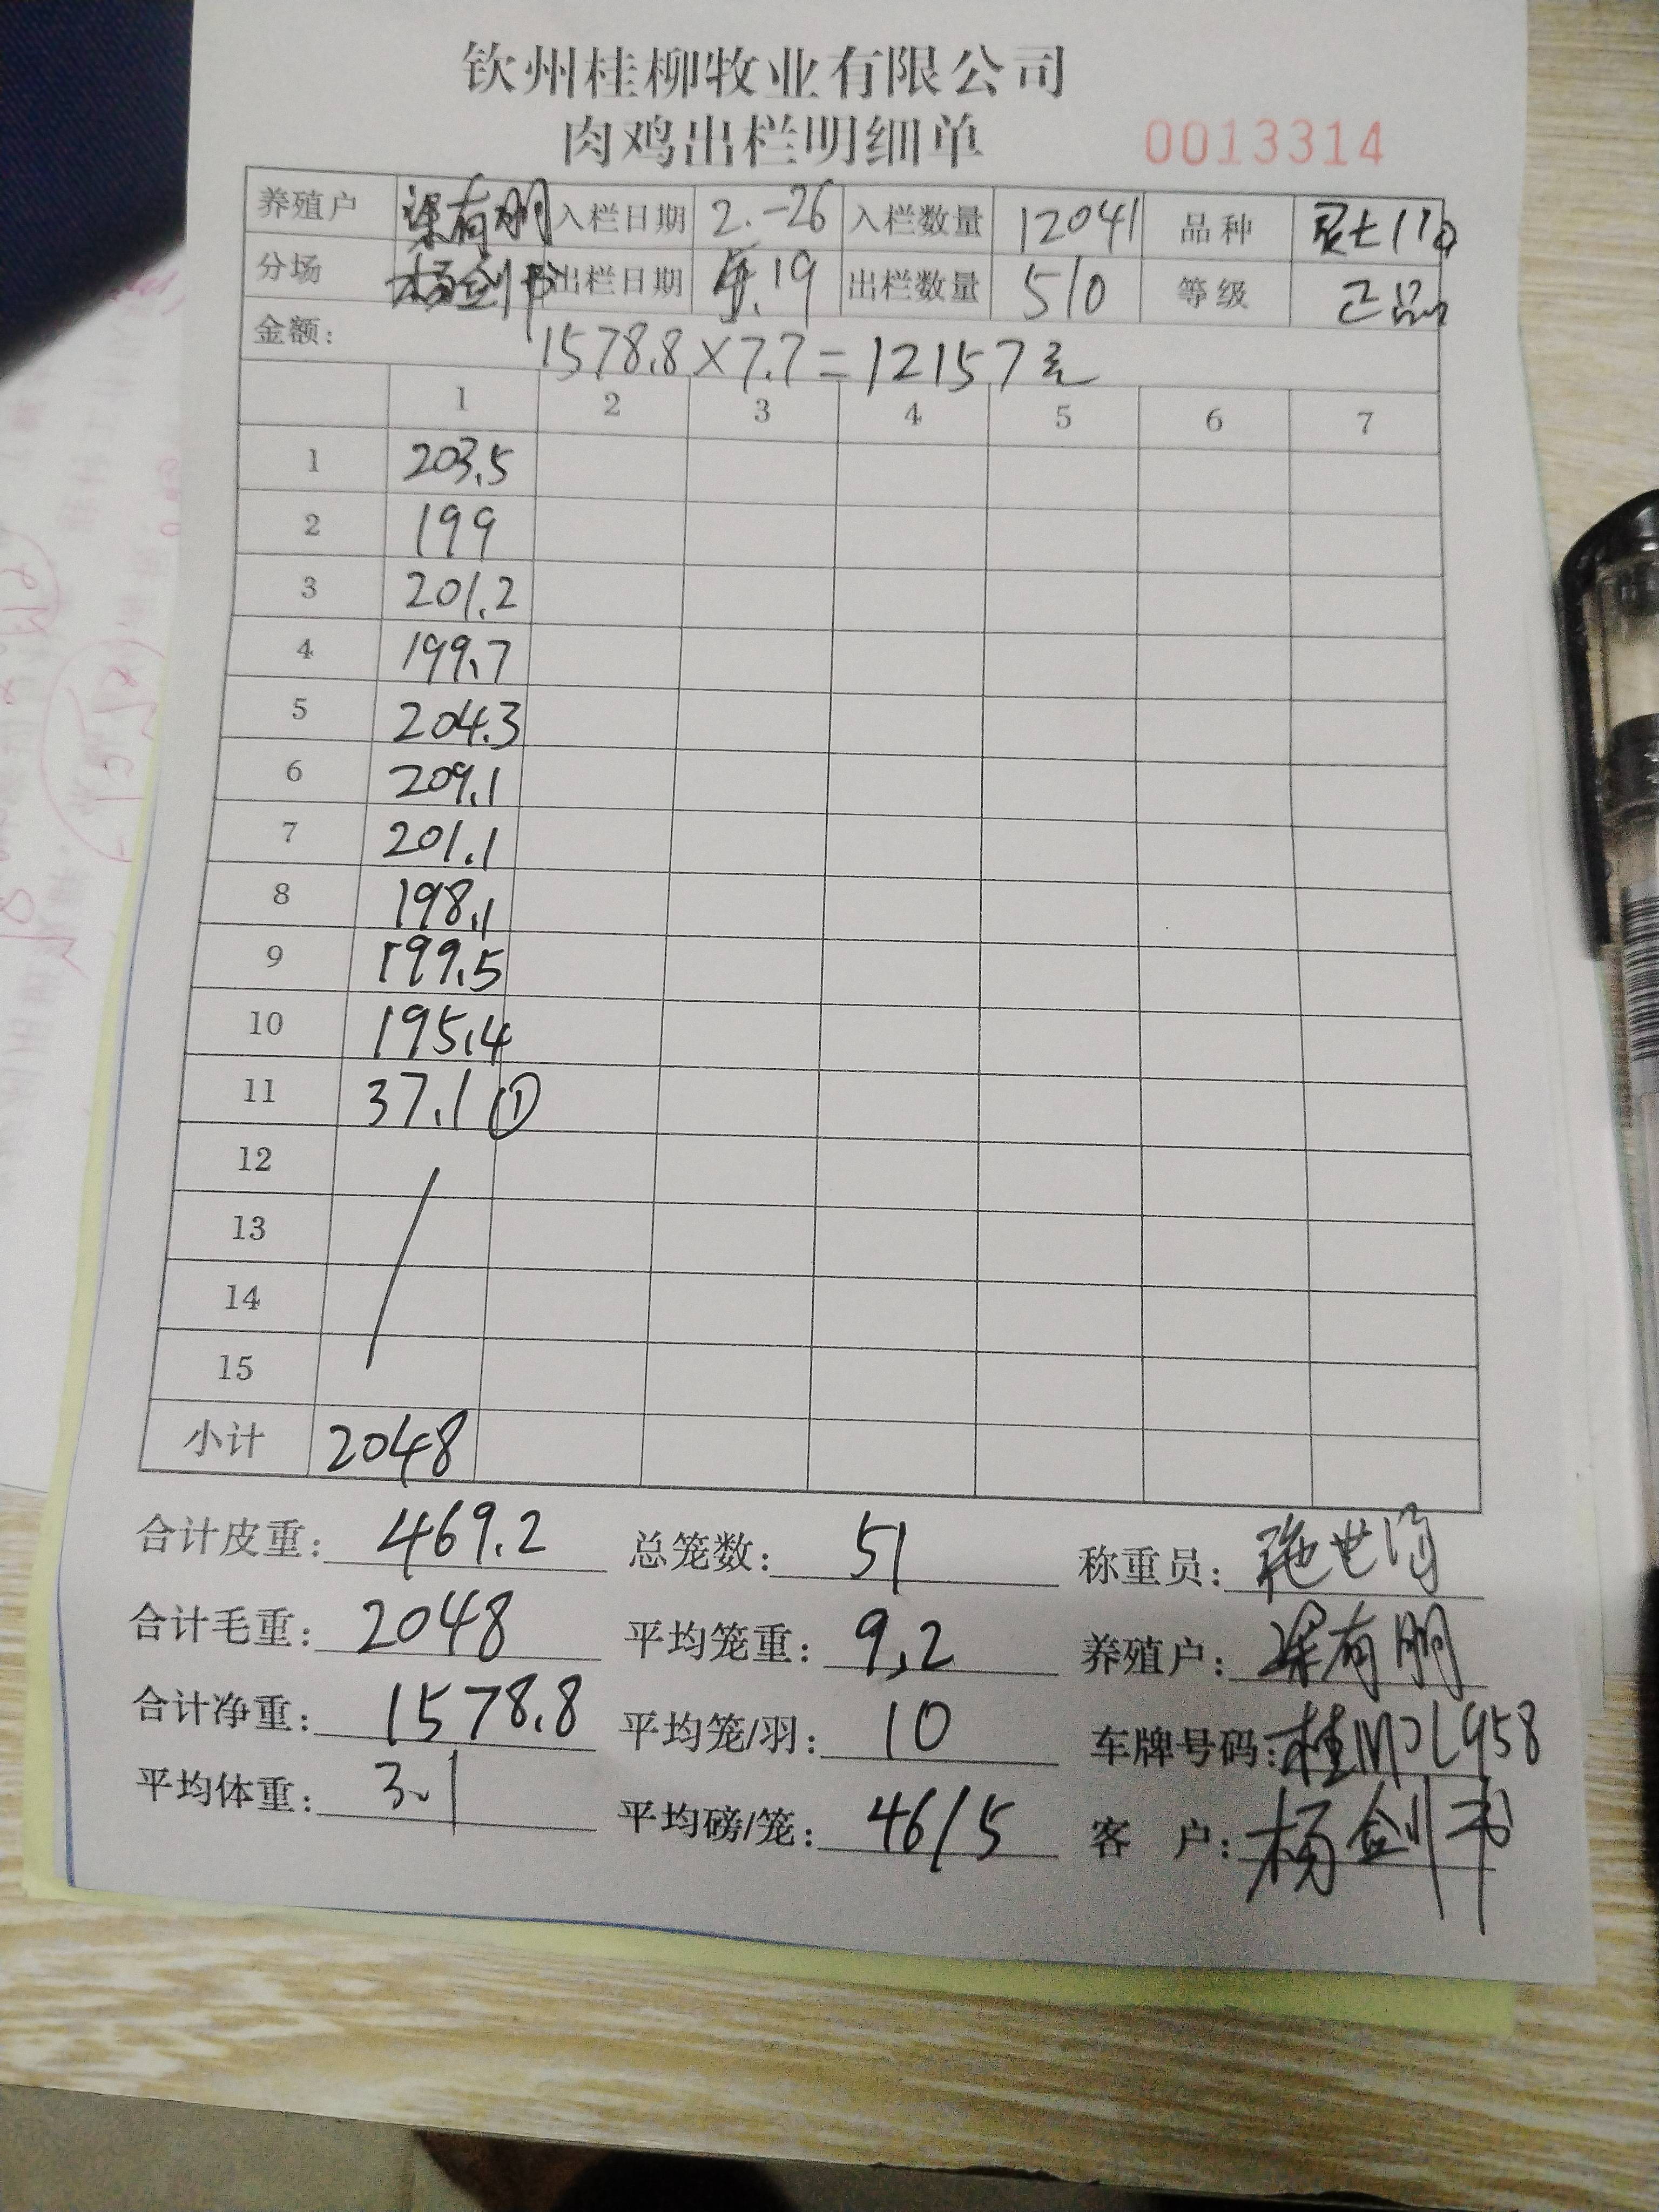 钦州桂柳牧业有限公司
肉鸡出栏明细单 0013314
养殖户 梁有朋 入栏日期 2.-26 入栏数量 12041 品种
分场 杨剑书 出栏日期 .19 出栏数量 510 等级 正品
金额: 1578.8×7.7=12157元
1 2 3 4 5 6 7
1 203.5
2 199
3 201.2
4 199.7
5 204.3
6 209.1
7 201.1
8 198.1
9 199.5
10 195.4
11 37.1 ①
12
13
14
15
小计 2048
合计皮重: 469.2 总笼数: 51 称重员:
合计毛重: 2048 平均笼重: 9.2 养殖户: 梁有朋
合计净重: 1578.8 平均笼/羽: 10 车牌号码:
平均体重: 3.1 平均磅/笼: 46/5 客 户: 杨剑书